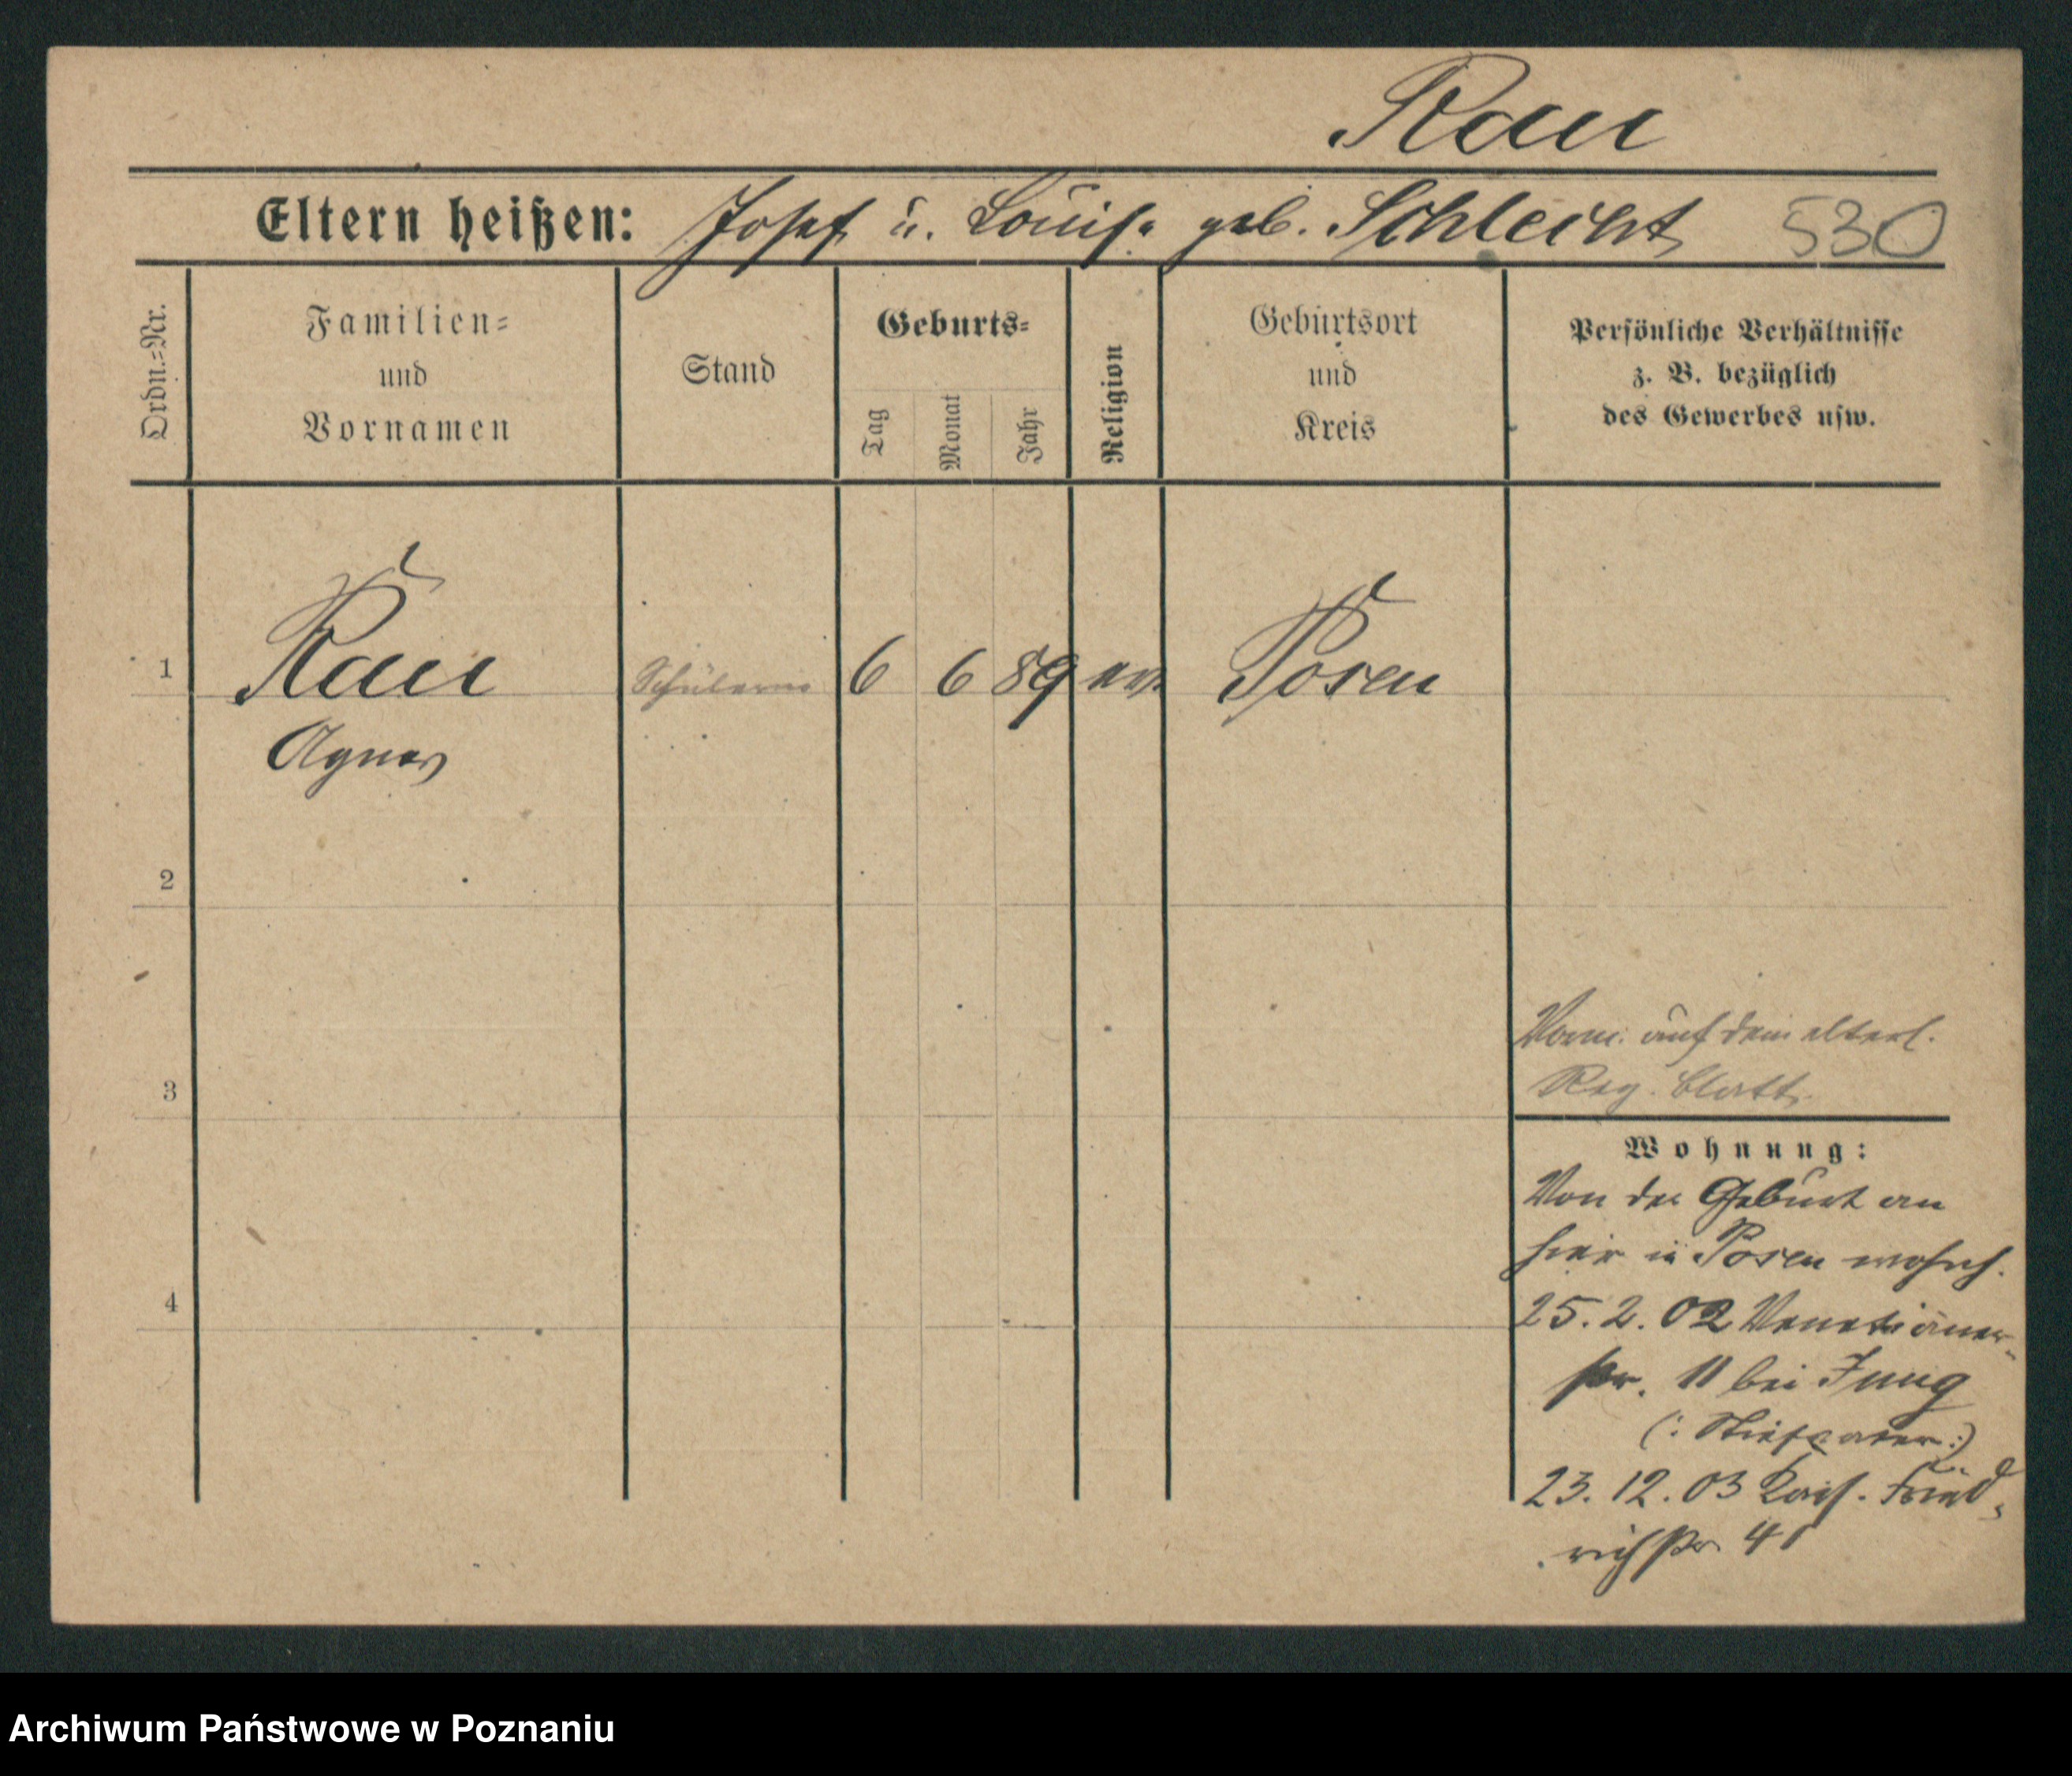 Rau
Eltern heißen: Josef u. Louise geb. Schlecht 530
Ordn.-Nr.
Familien=
und
Vornamen
Stand
Geburts=
Tag
Monat
Jahr
Religion
Geburtsort
und
Kreis
Persönliche Verhältnisse
z. B. bezüglich
des Gewerbes usw.
1 Rau Schülerin 6 6 89 ev. Posen
Agnes
2
3
4
Verm. auf dem elterl.
Reg. blatt.
Wohnung:
Von der Geburt an
hier in Posen wohnh.
25. 2. 02 Venetianer-
str. 11 bei Jung
(: Stiefvater :)
23. 12. 03 Kais. Fried-
richstr. 41
Archiwum Państwowe w Poznaniu